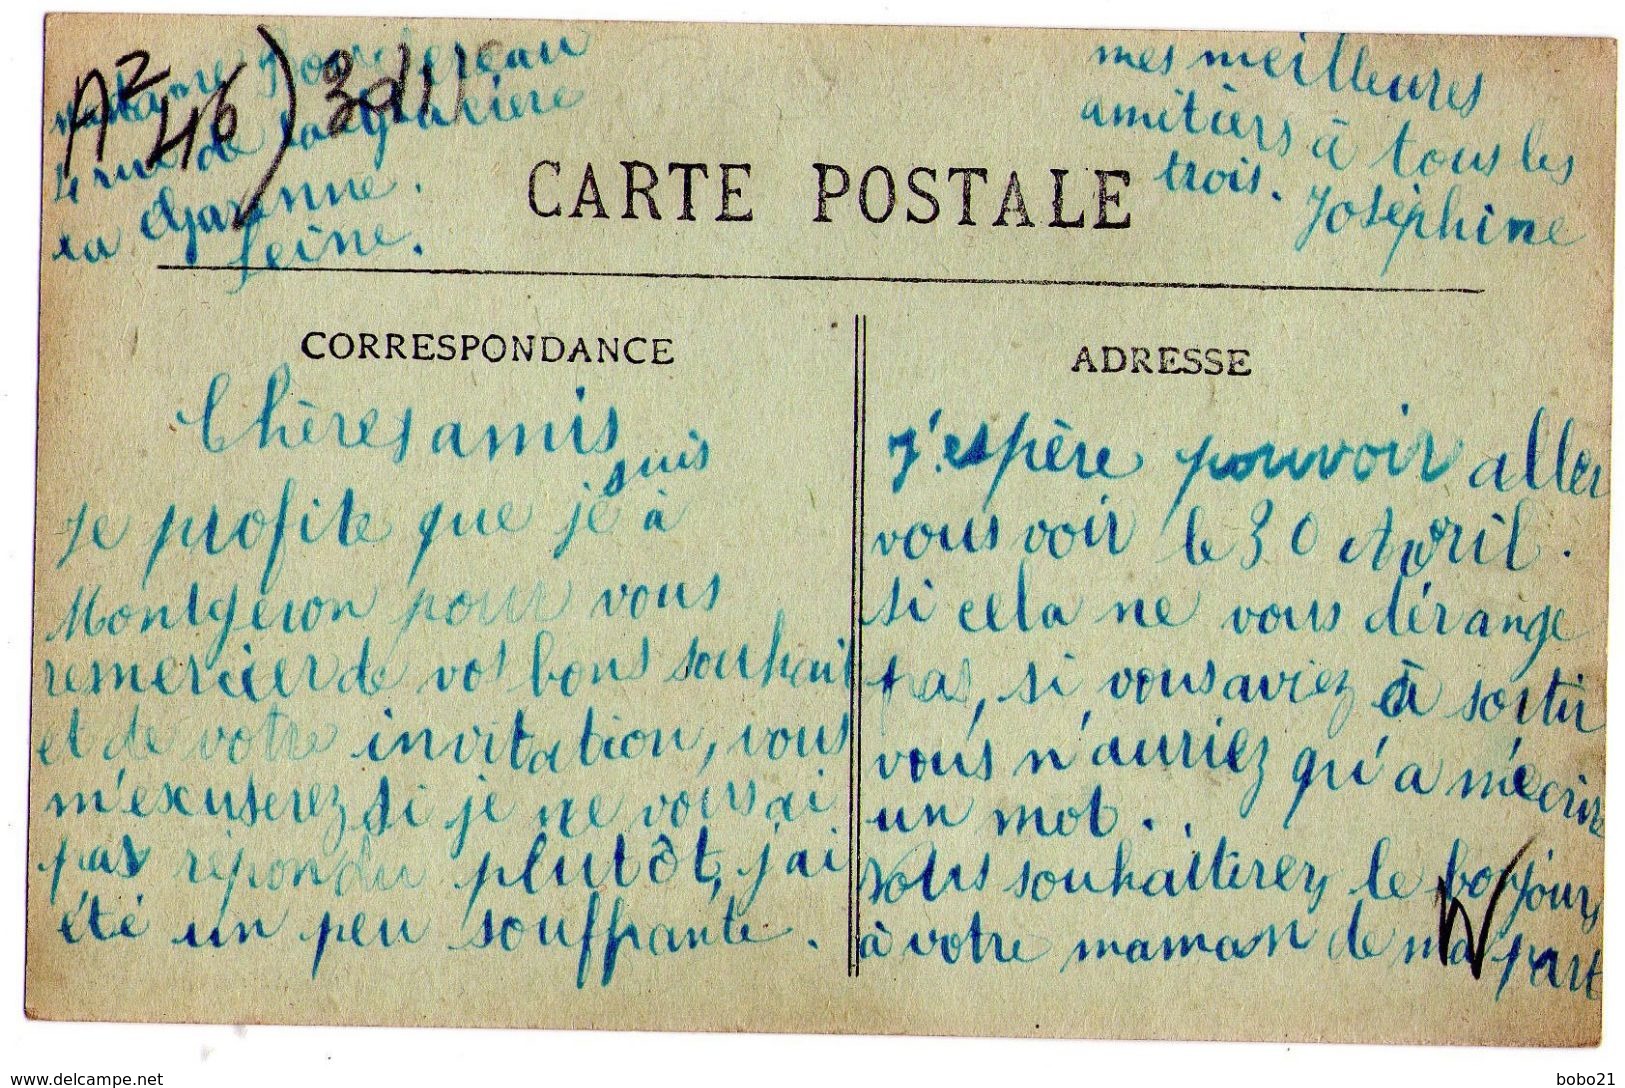 A2
46) 3d11
madame
4 rue de la glacière
La Garenne.
Seine.
mes meilleures
amitiers à tous les
trois. Joséphine
CARTE POSTALE
CORRESPONDANCE
Chères amis
suis
Je profite que je à
Montgeron pour vous
remercier de vos bons souhait
et de votre invitation, vous
m'excuserez si je ne vous ai
pas répondu plutôt, j'ai
été un peu souffrante.
ADRESSE
J'espère pouvoir aller
vous voir le 30 Avril.
si cela ne vous dérange
pas, si vous aviez à sortir
vous n'auriez qu'a m'écrire
un mot.
Vous souhaiterez le bonjours
à votre maman de ma part
www.delcampe.net
bobo21